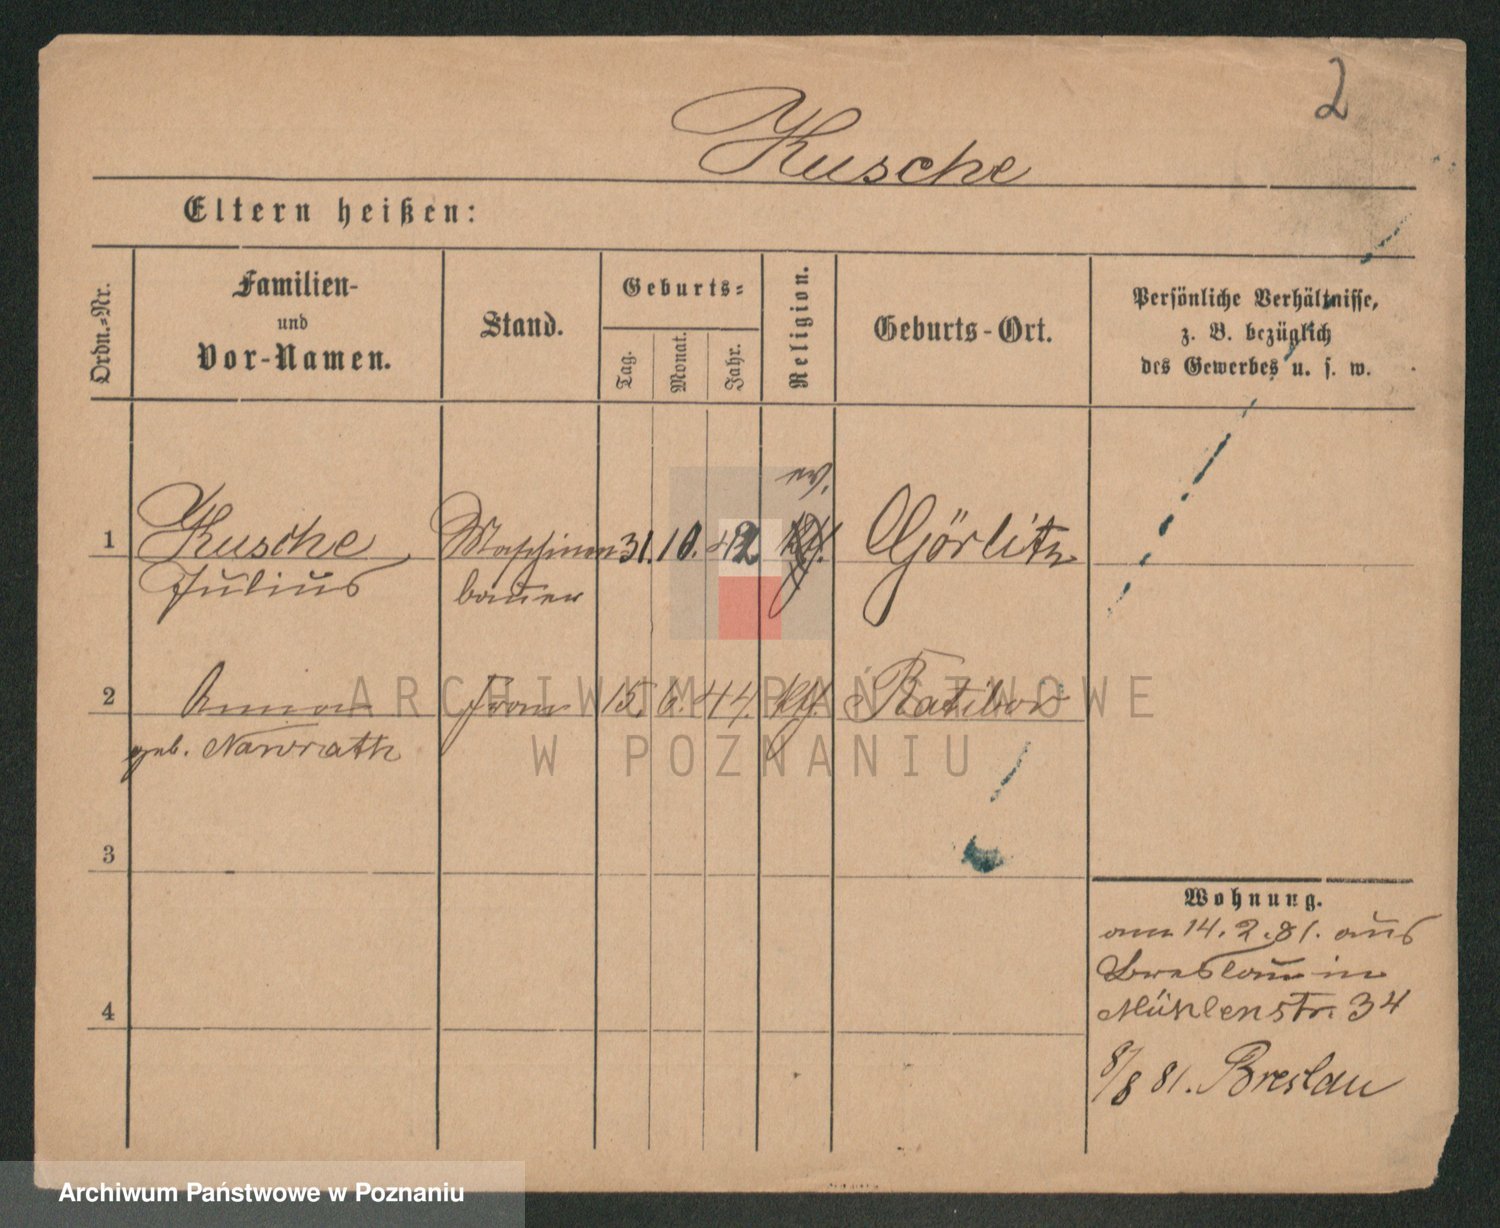 2
Kusche
Eltern heißen:
Ordn.-Nr.
Familien-
und
Vor-Namen.
Stand.
Geburts-
Tag.
Monat.
Jahr.
Religion.
Geburts-Ort.
Persönliche Verhältnisse,
z. B. bezüglich
des Gewerbes u. s. w.
ev.
1 Kusche, Maschinen 31. 10. 42 kth. Görlitz
Julius bauer
2 Anna Frau 15. 6. 44. kth. Ratibor
geb. Nawrath
3
4
Wohnung.
am 14. 2. 81. aus
Breslau in
Mühlenstr. 34
8/8 81. Breslau
ARCHIWUM PAŃSTWOWE
W POZNANIU
Archiwum Państwowe w Poznaniu